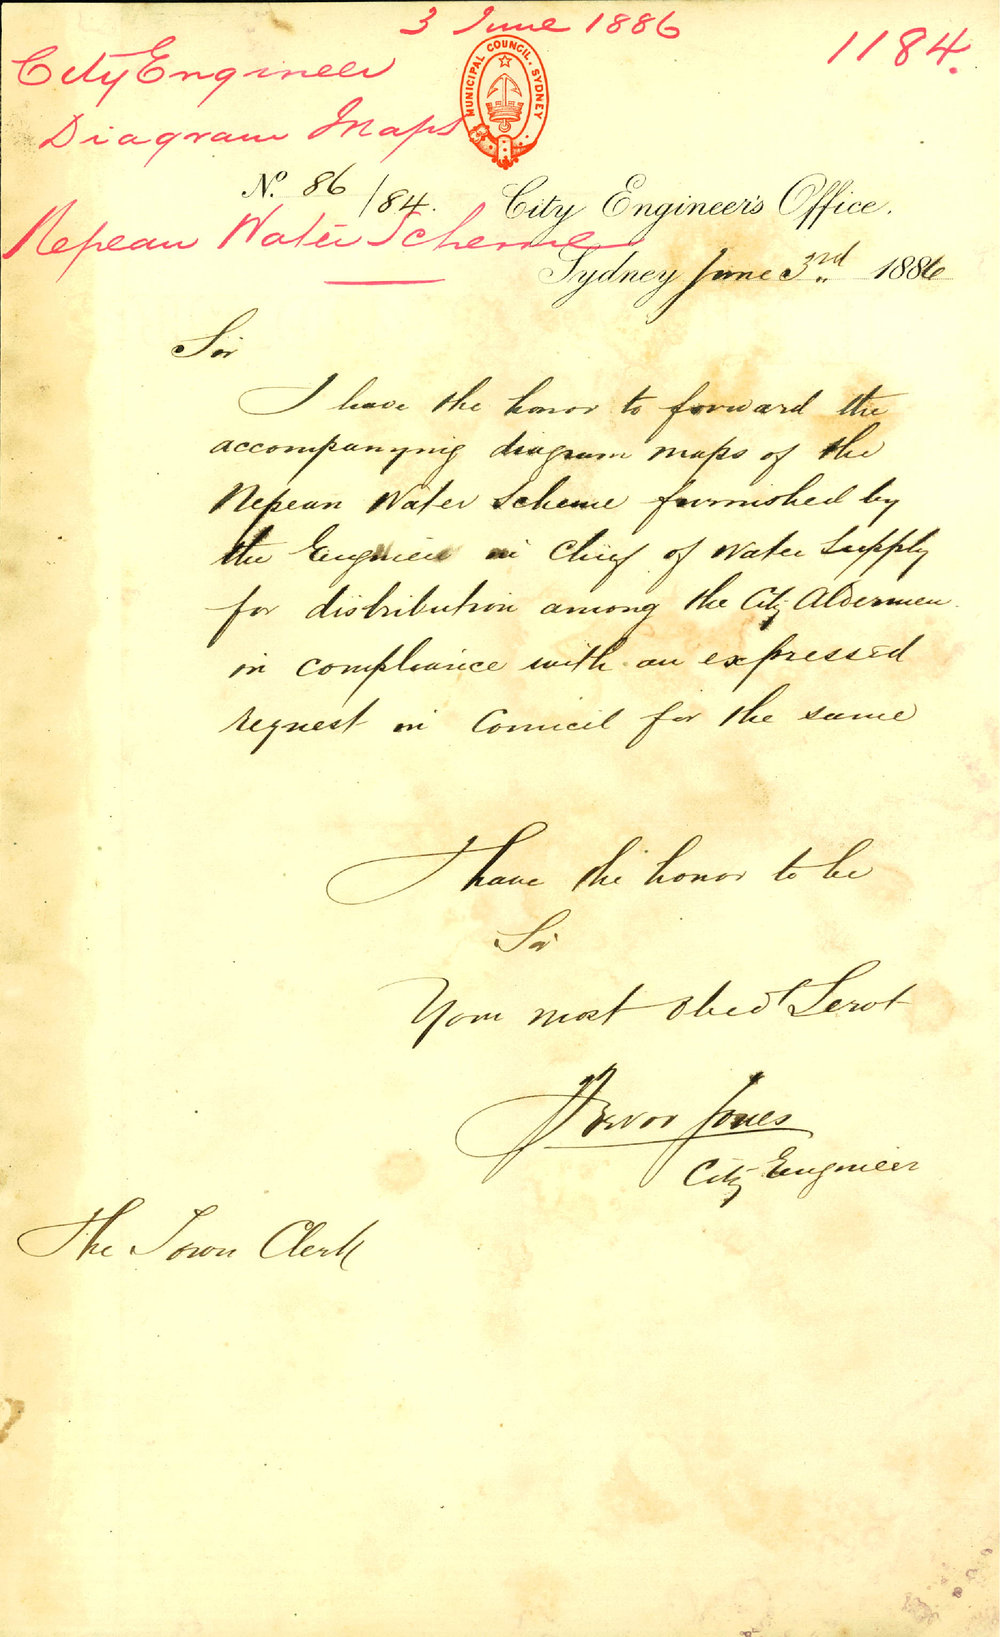 3 June 1886
1184.
City Engineer
Diagram Maps
MUNICIPAL COUNCIL, SYDNEY
No. 86/184.
City Engineer's Office.
Nepean Water Scheme
Sydney June 3rd 1886
Sir
I have the honor to forward the
accompanying diagram maps of the
Nepean Water Scheme furnished by
the Engineer in Chief of Water Supply
for distribution among the City Aldermen
in compliance with an expressed
request in Council for the same
I have the honor to be
Sir
Your most obedt Servt
Trevor Jones
City Engineer
The Town Clerk